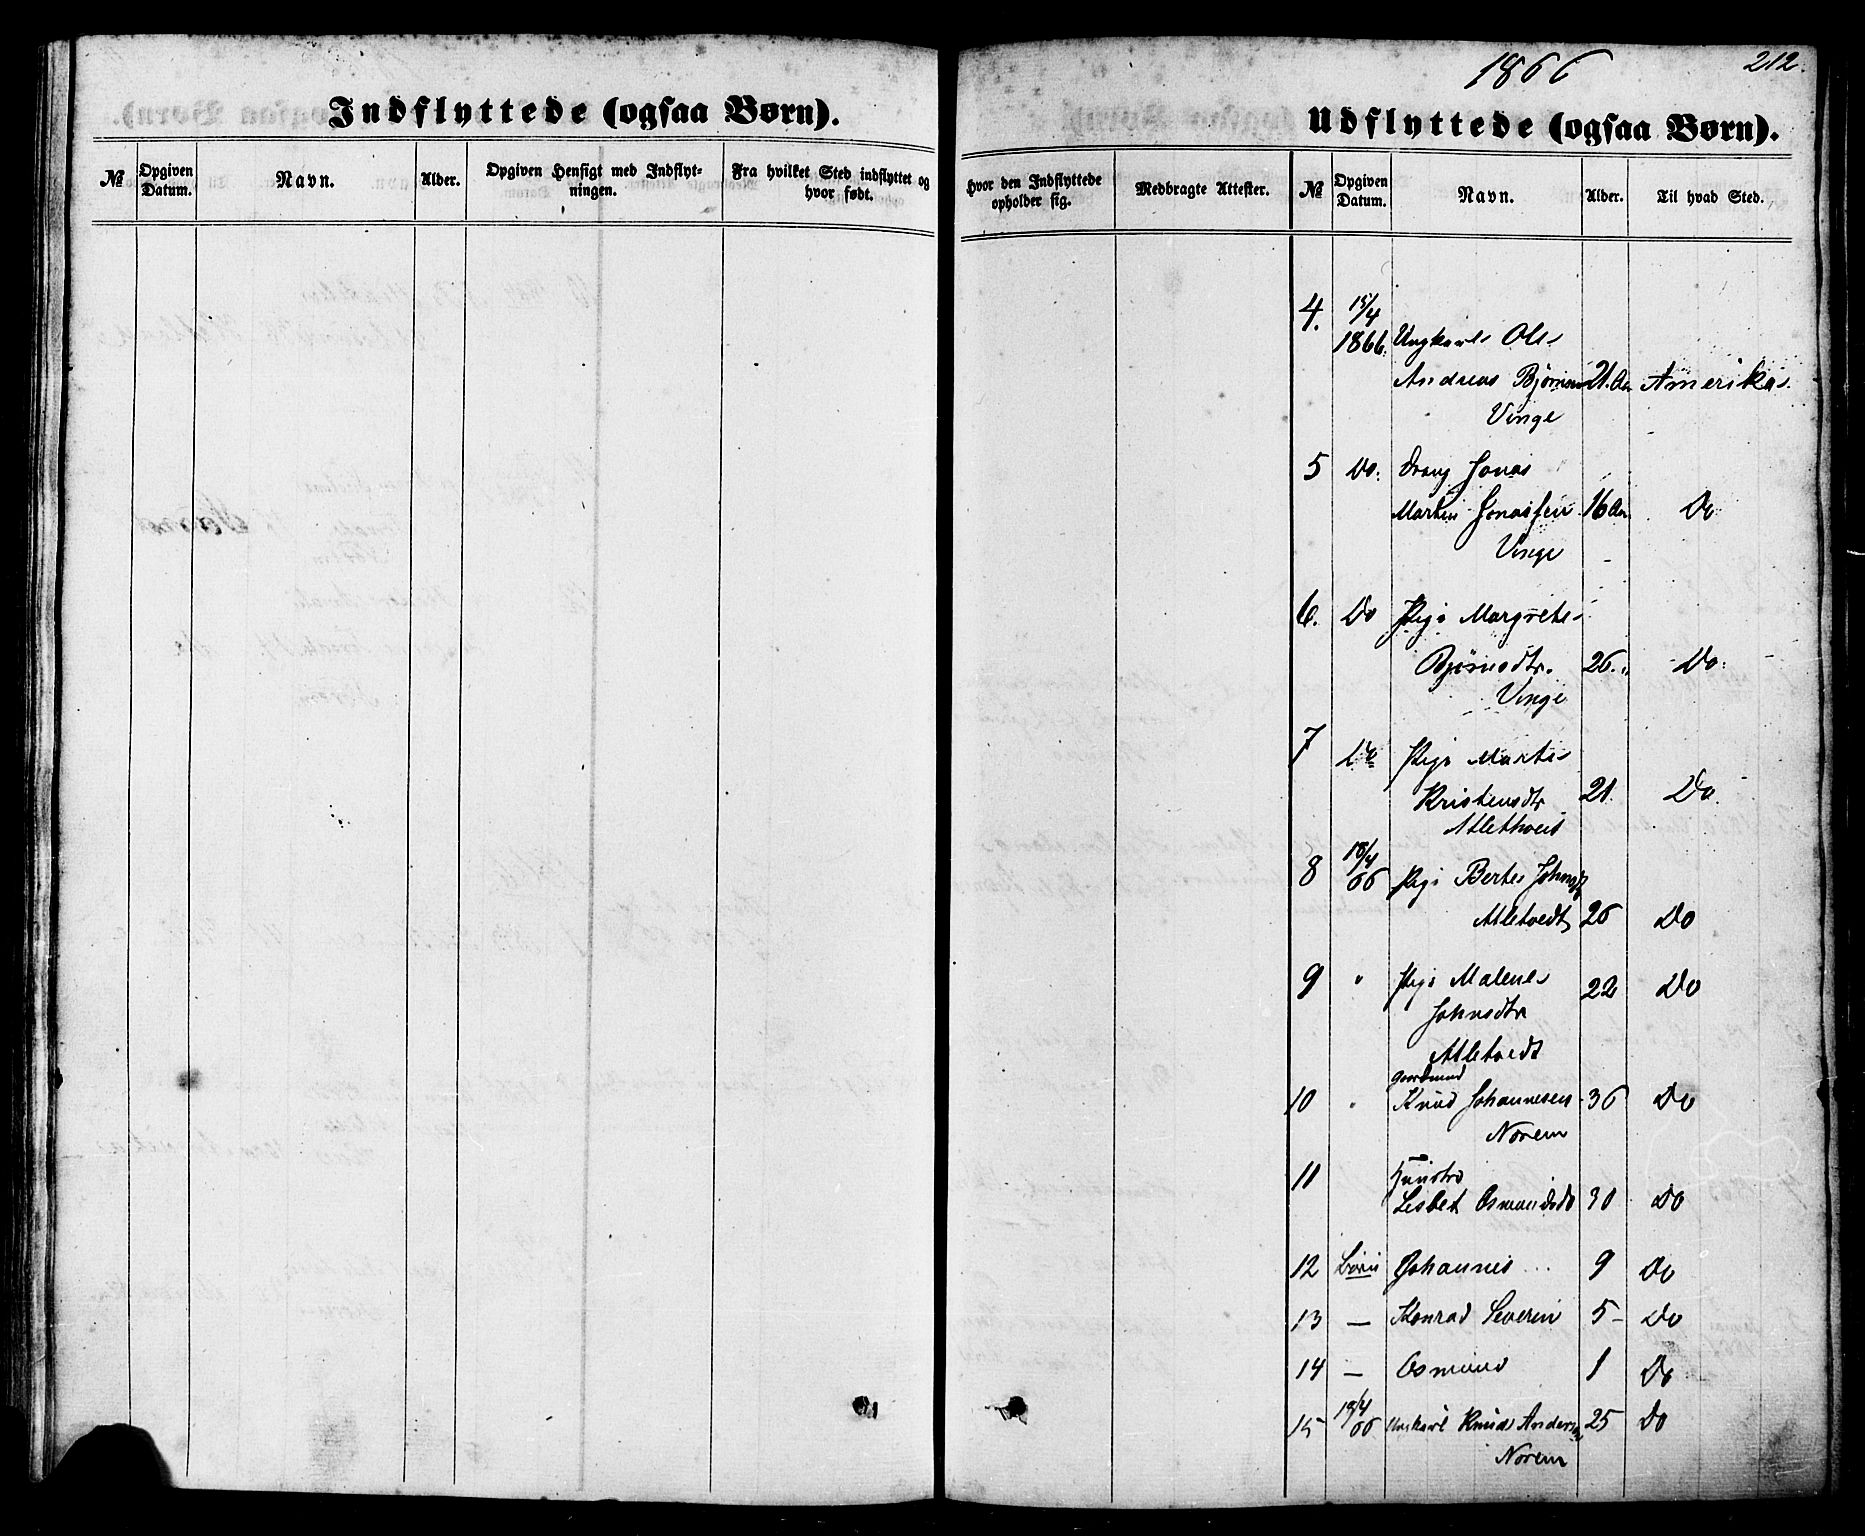 1866
212.
Indflyttede (ogsaa Børn).
Udflyttede (ogsaa Børn).
№ Opgiven Datum. Navn. Alder. Opgiven Hensigt med Indflyt-
ningen. Fra hvilket Sted indflyttet og
hvor født.
Hvor den Indflyttede
opholder sig. Medbragte Attester. № Opgiven Datum. Navn. Alder. Til hvad Sted.
4. 15/4
1866. Ungkarl Ole
Andreas 21. Aar Amerika
Vinge
5 Do. Dreng Jonas
Martin Jonassen 16 Aar Do
Vinge
6. Do Pige Margrete
Bjørnsdtr. 26. " Do.
Vinge
7 Do Pige Marte
Kristensdtr 21. Do.
Atlethveit
8 18/4
66 Pige Berte Johnsdtr
Atletvedt 26 Do
9 " Pige Malene 22 Do
Johnsdtr
Atletvedt
Gaardmand
10 " Knud Johannesen 36 Do
Norem
11 Hustru
Lisbet Osmundsdtr 30 Do
12 Børn Johannes 9 Do
13 — Konrad Severin 5 – Do
14 — Osmund 1 Do
15 18/4
66 Ungkarl Knud Andersen 25 Do
Norem